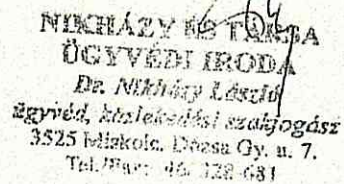 NIKHÁZY ÉS TÁRSA
ÜGYVÉDI IRODA
Dr. Nikházy László
ügyvéd, közlekedési szakjogász
3525 Miskolc, Dózsa Gy. u. 7.
Tel./Fax: 46/328-681